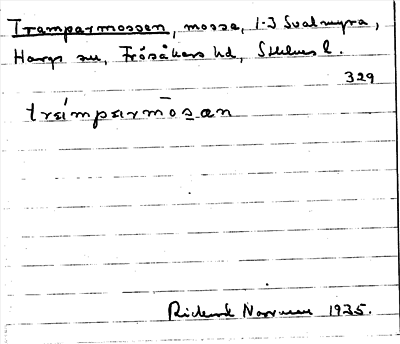 Tramparmossen, mosse, 1-3 Svalmyra,
Hargs sn, Frösåkers hd, Sthlms l.
329
trämparmōsan
Rickard Norrman 1935.